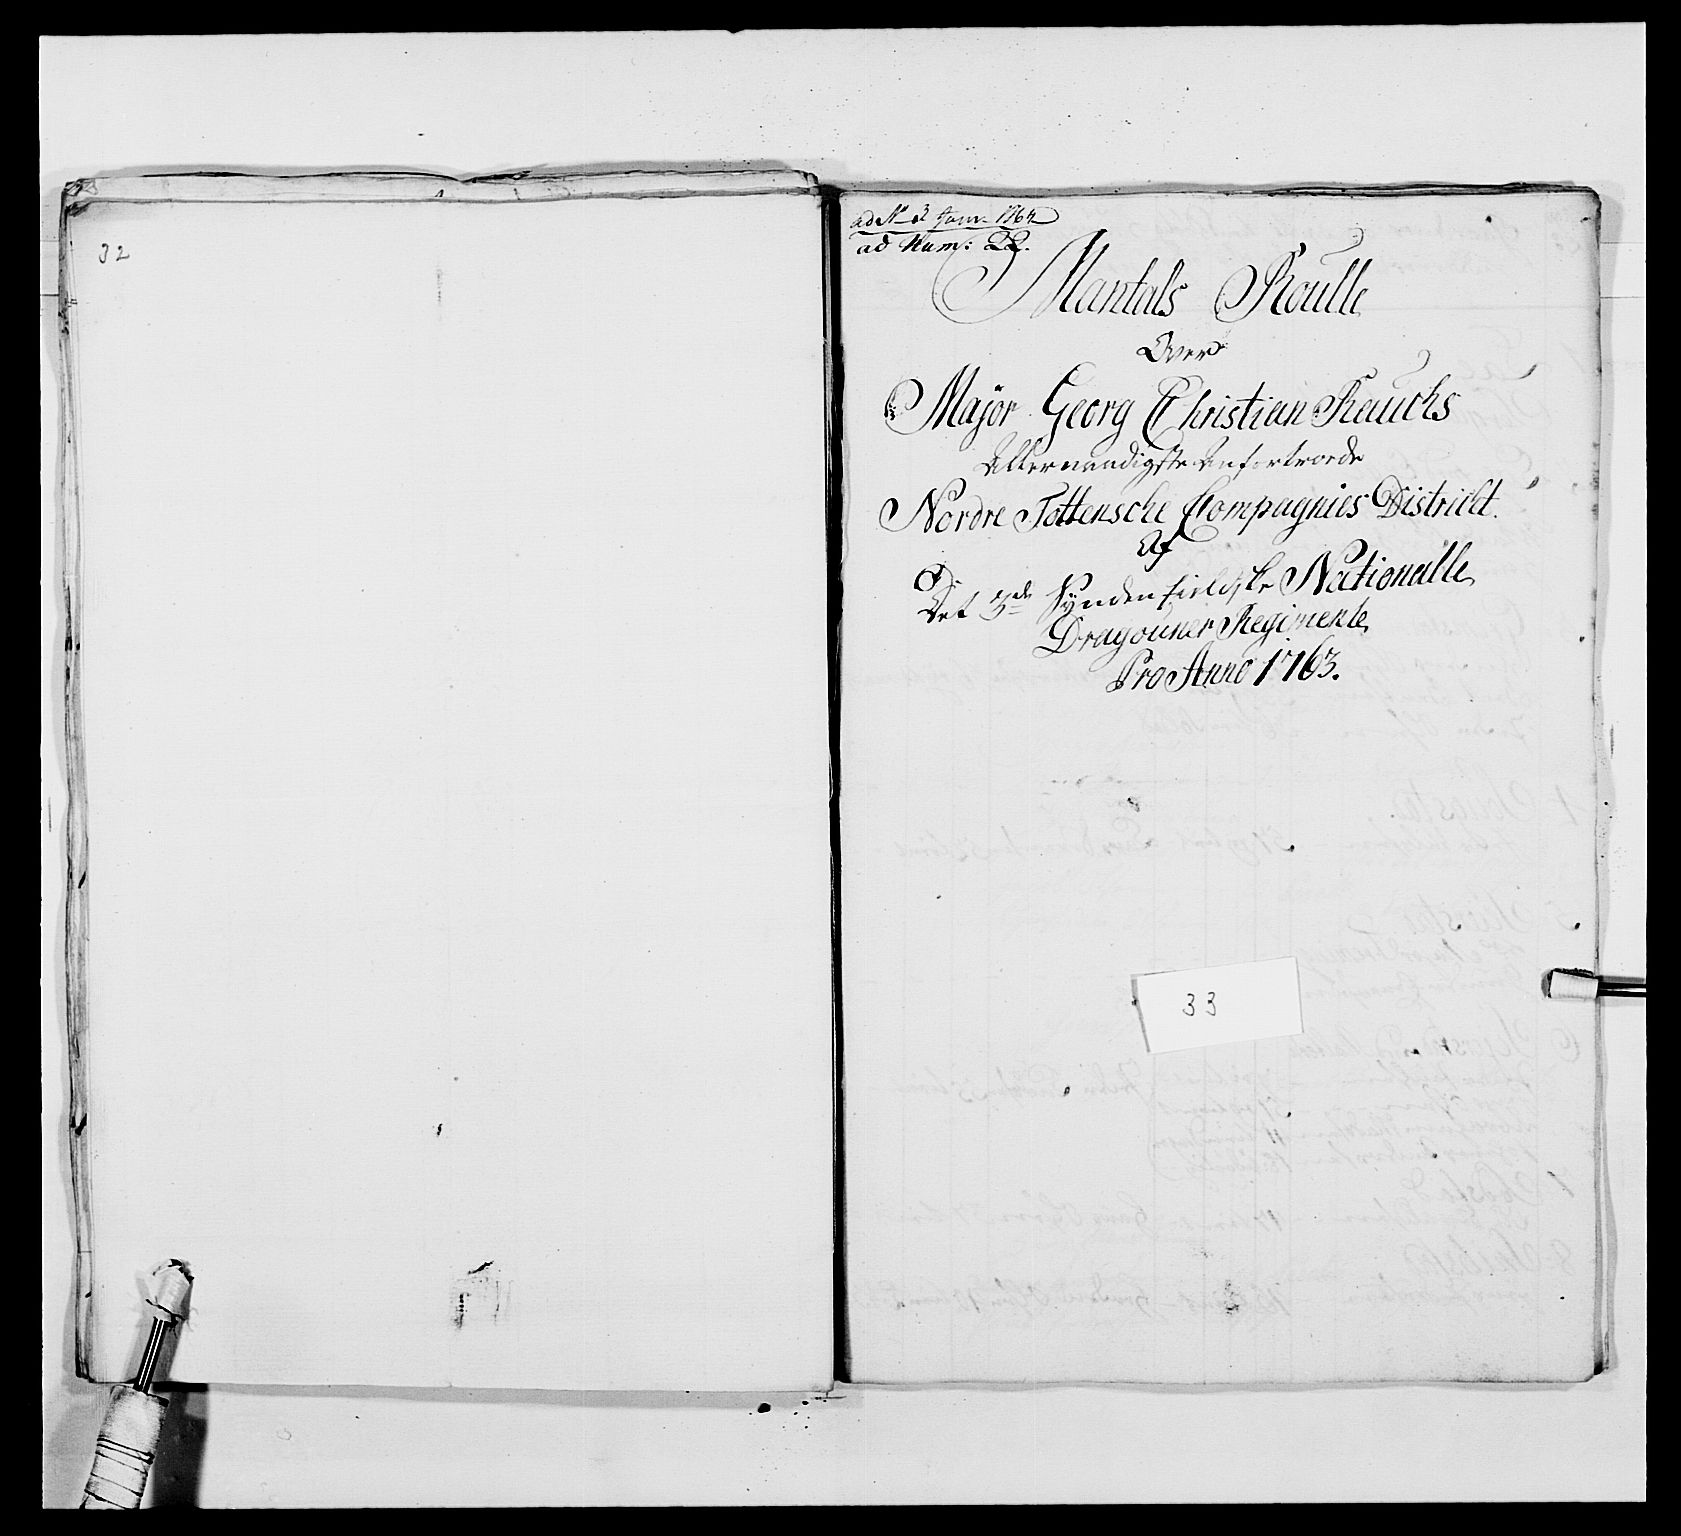 32
ad No 3 Janr. 1764
ad Num: 22.
Mantals Roulle
Over
Major Georg Christian Rauchs
Allernaadigste Anfortroede
Nordre Tottensche Compagnies District.
Af
Det 3de Syndenfieldske Nationalle
Dragouner Regimente
Pro Anno 1763.
33